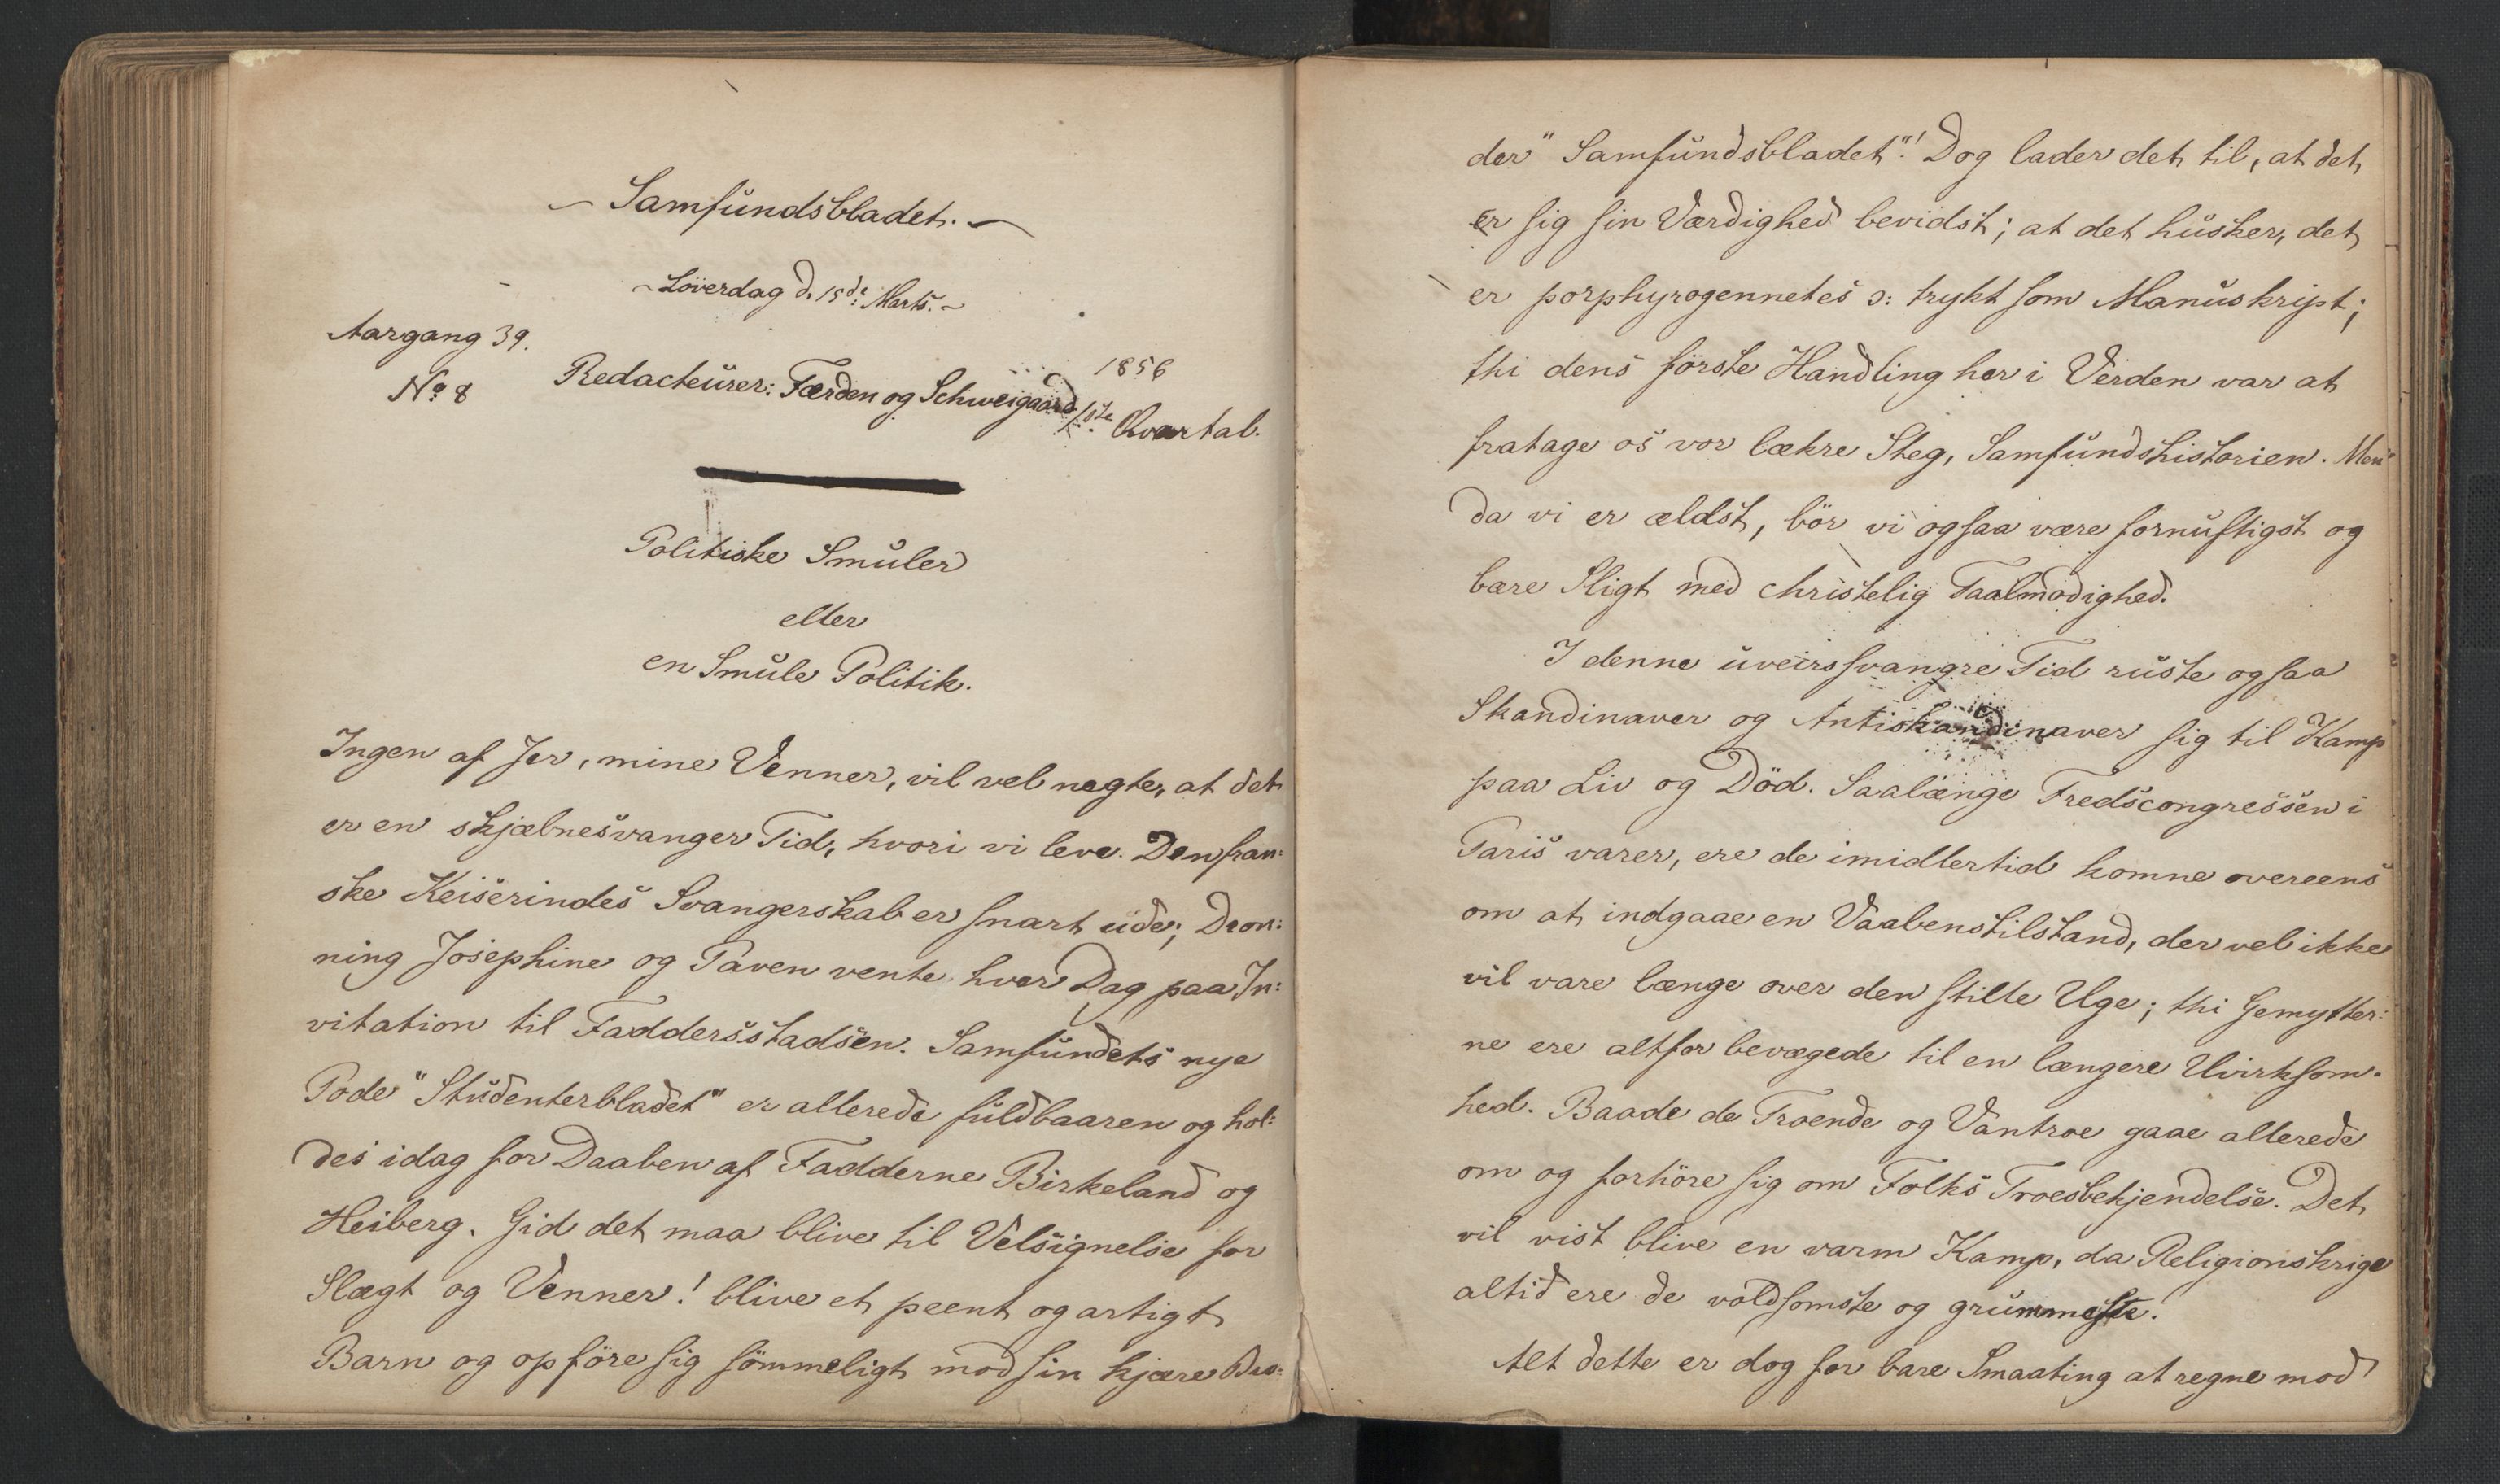 Samfundsbladet.
Löverdag d. 15de Marts.
Aargang 39.
1856
No 8
Redacteurer: Færden og Schweigaard
1ste Qvartal.
Politiske Smuler
eller
en Smule Politik.
Ingen af Jer, mine Venner, vil vel negte, at det
er en skjæbnesvanger Tid, hvori vi leve. Den fran:
ske Keiserindes Svangerskab er snart ude; Dron:
ning Josephine og Paven vente hver Dag paa In:
vitation til Faddersstadsen. Samfundets nye
Pode "Studenterbladet" er allerede fuldbaaren og hol:
des idag for Daaben af Fadderne Birkeland og
Heiberg. Gid det maa blive til Velsignelse for
Slægt og Venner! blive et peent og artigt
Barn og opföre sig sömmeligt mod sin kjære Bro:
der "Samfundsbladet"! Dog lader det til, at det
er sig sin Værdighed bevidst; at det husker, det
er porphyrogennetes ɔ: trykt som Manuskript;
thi dens förste Handling her i Verden var at
fratage os vor lækre Steg, Samfundshistorien. Men
da vi er ældst, bör vi ogsaa være fornuftigst og
bære Sligt med christelig Taalmodighed.
I denne uveirssvangre Tid ruste ogsaa
Skandinaver og Antiskandinaver sig til Kamp
paa Liv og Död. Saalænge Fredscongressen i
Paris varer, ere de imidlertid komne overeens
om at indgaae en Vaabenstilstand, der vel ikke
vil vare længe over den stille Uge; thi Gemytter:
ne ere altfor bevægede til en længere Uvirksom-
hed. Baade de Troende og Vantroe gaae allerede
om og forhöre sig om Folks Troesbekjendelse. Det
vil vist blive en varm Kamp, da Religionskrige
altid ere de voldsomste og grummeste.
Alt dette er dog for bare Smaating at regne mod